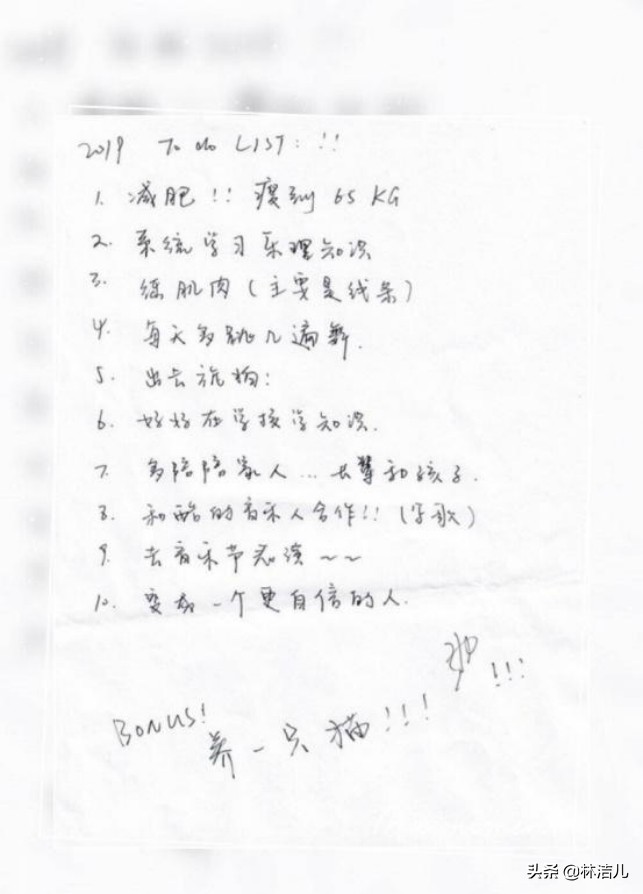 2019 To do LIST: !!
1. 减肥!! 瘦到 65 KG
2. 系统学习乐理知识
3. 练肌肉(主要是线条)
4. 每天多跳几遍舞.
5. 出去旅拍:
6. 好好在学校学知识.
7. 多陪陪家人... 长辈和孩子.
8. 和酷的音乐人合作!! (写歌)
9. 去音乐节表演~~
10. 变成一个更自信的人.
!!!
BONUS!
养一只猫!!!
头条 @林洁儿